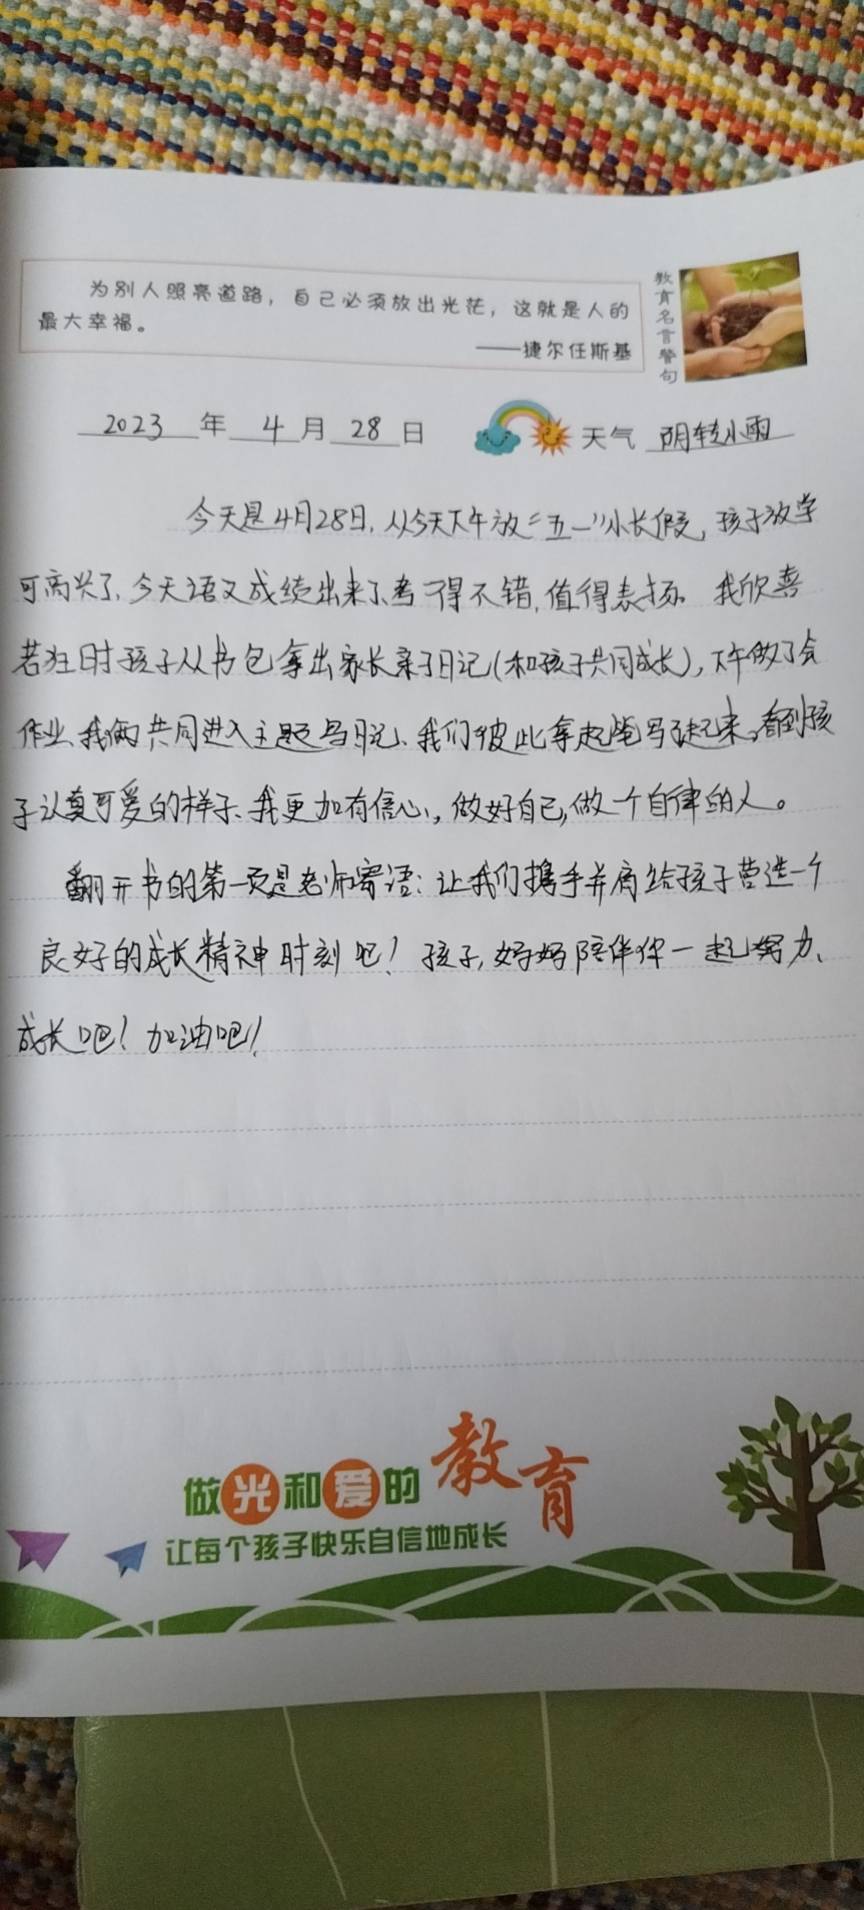 为别人照亮道路，自己必须放出光茫，这就是人的
最大幸福。
——捷尔任斯基
教育名言警句
2023年4月28日 天气 阴转小雨
今天是4月28日，从今天下午放“五一”小长假，孩子放学
可高兴了、今天语文成绩出来了、考得不错，值得表扬。我欣喜
若狂时孩子从书包拿出家长亲子日记(和孩子共同成长)，下午做了会
作业、我俩共同进入主题写日记、我们彼此拿起笔写起来，看到孩
子认真可爱的样子、我更加有信心，做好自己，做一个自律的人。
翻开书的第一页是老师寄语：让我们携手并肩给孩子营造一个
良好的成长精神时刻吧！孩子，妈妈陪伴你一起努力、
成长吧！加油吧！
做光和爱的教育
让每个孩子快乐自信地成长